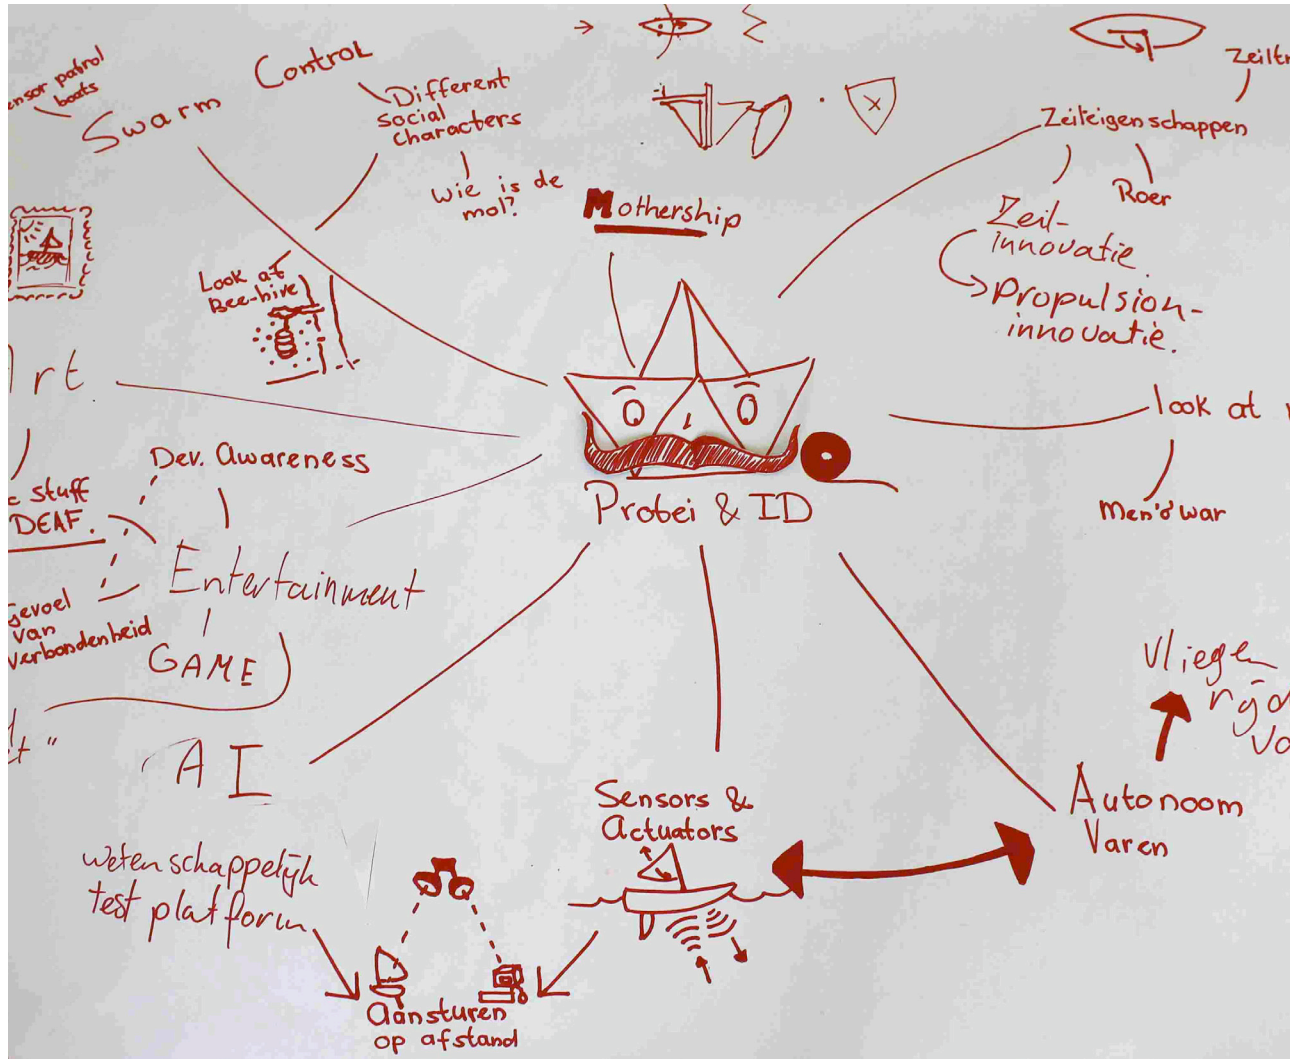 ensor patrol
boats
Swarm
Control
Different
social
characters
Wie is de
mol?
Look at
Bee-hive
Mothership
Zeileigenschappen
Roer
Zeil-
innovatie
Propulsion-
innovatie.
look at
Men'o'war
Art
Dev. Awareness
stuff
DEAF.
Entertainment
gevoel
van
verbondenheid
GAME
AI
Protei & ID
Sensors &
Actuators
Autonoom
Varen
Vliegen
wetenschappelijk
test platform
Aansturen
op afstand